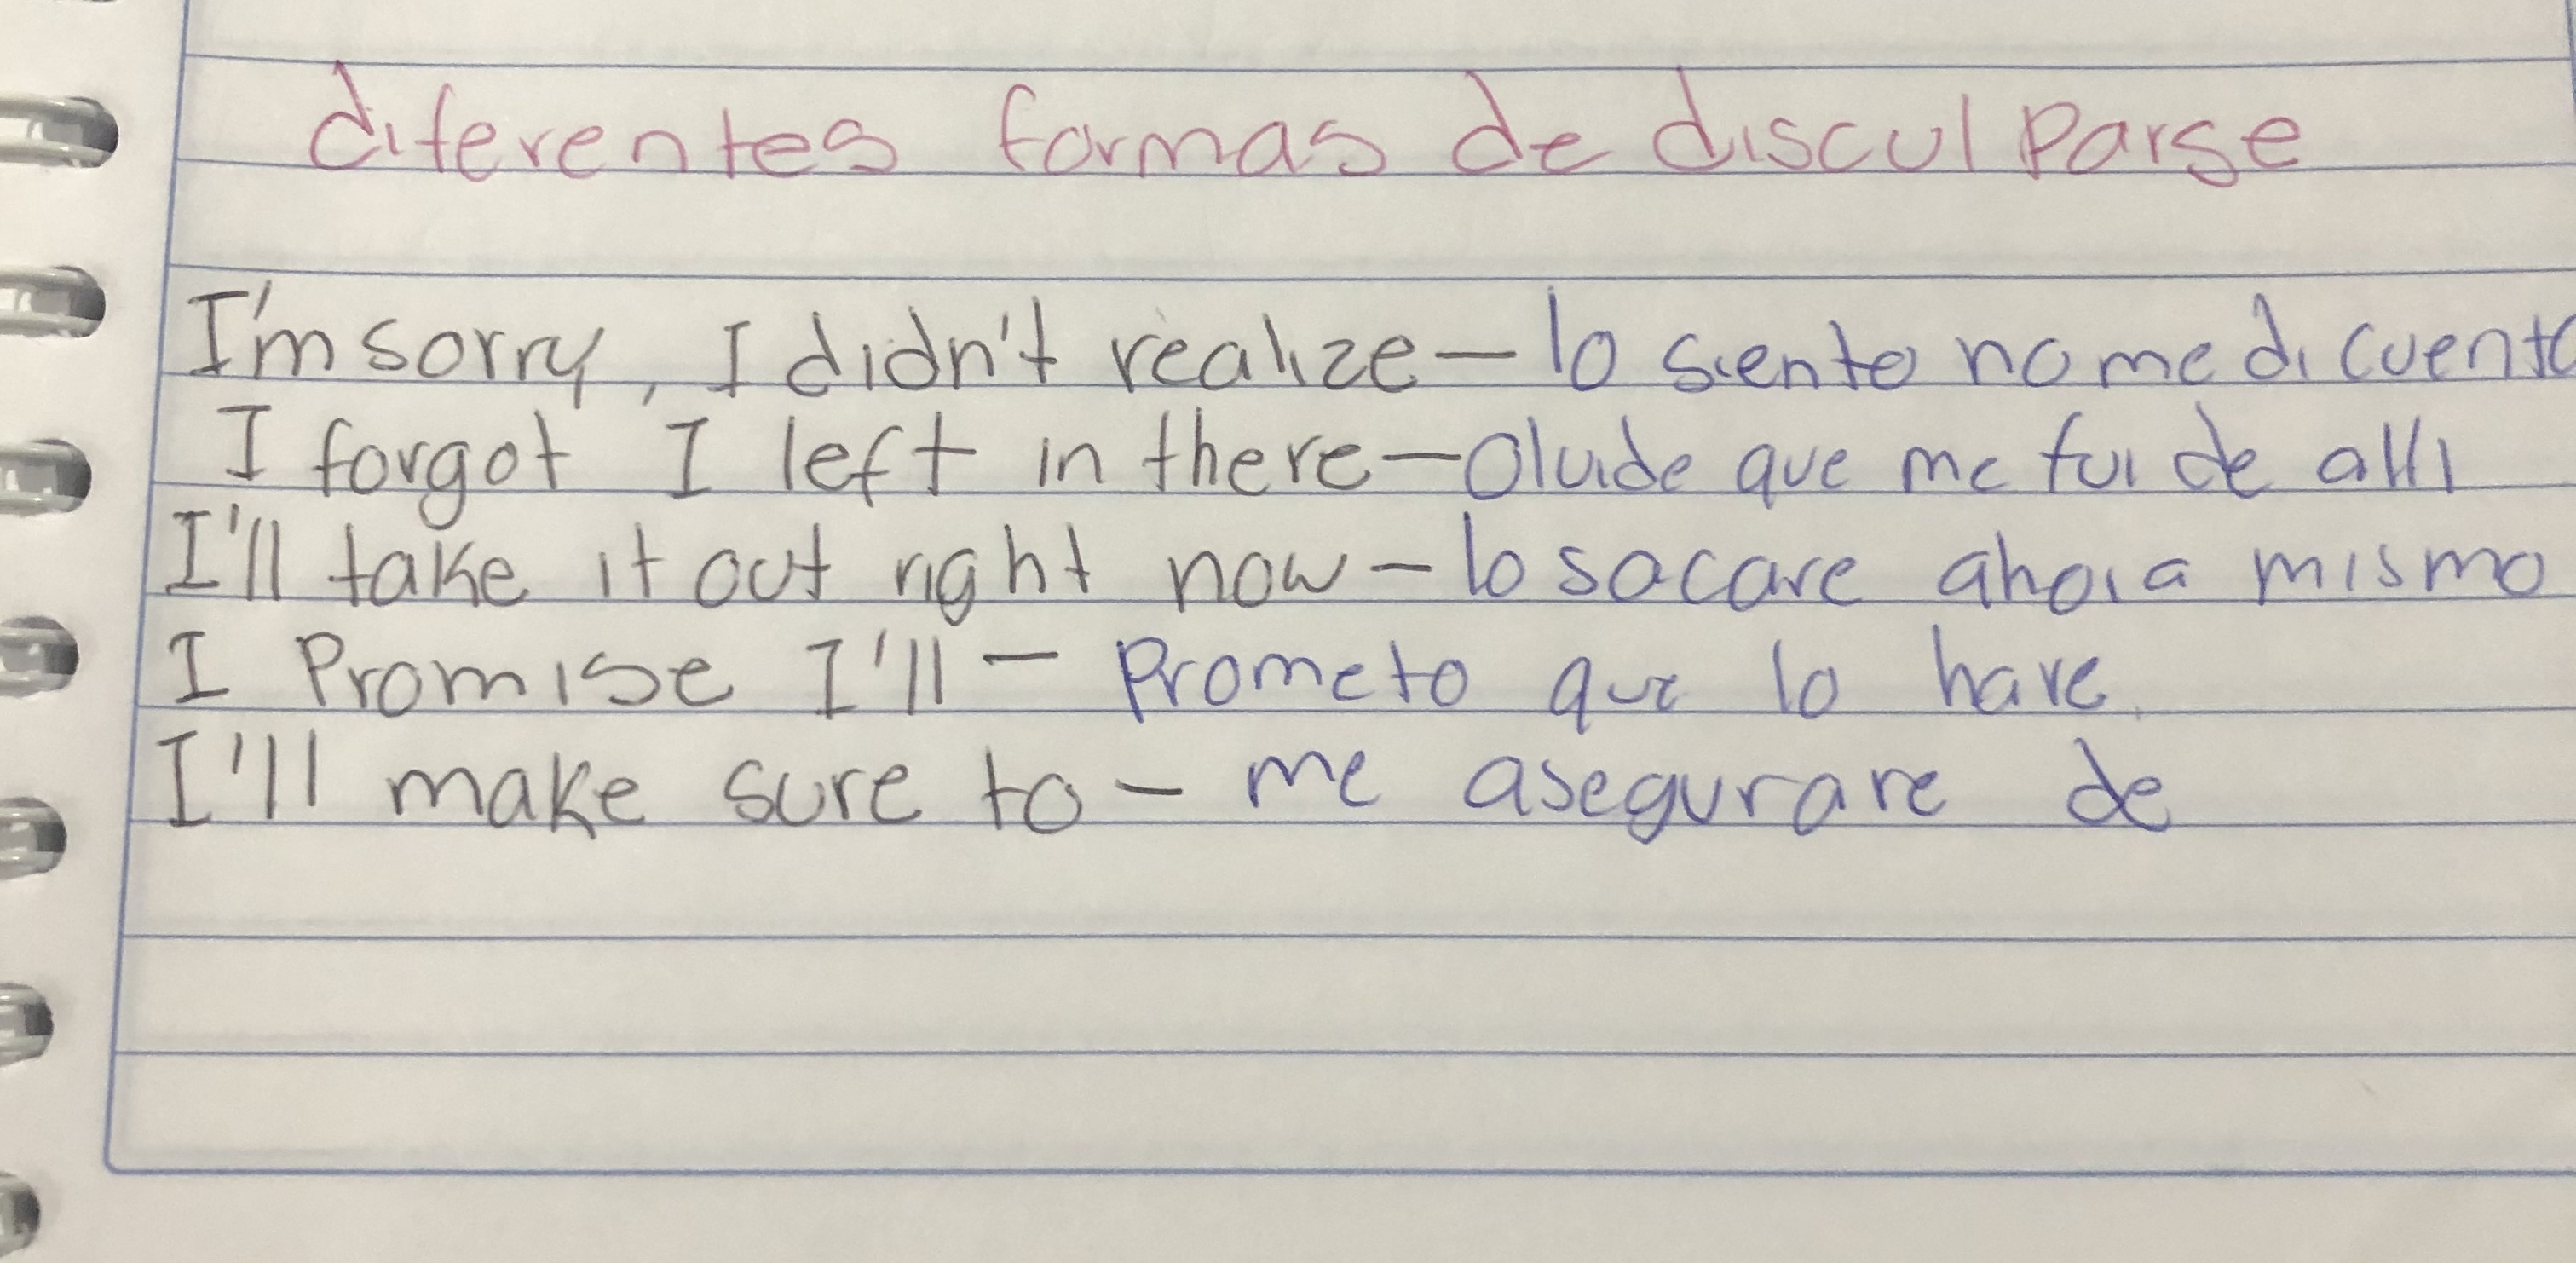 diferentes formas de disculparse
I'm sorry, I didn't realize — lo siento no me di cuenta
I forgot I left in there — Olvide que me fui de alli
I'll take it out right now — lo sacare ahora mismo
I Promise I'll — Prometo que lo hare
I'll make sure to — me asegurare de